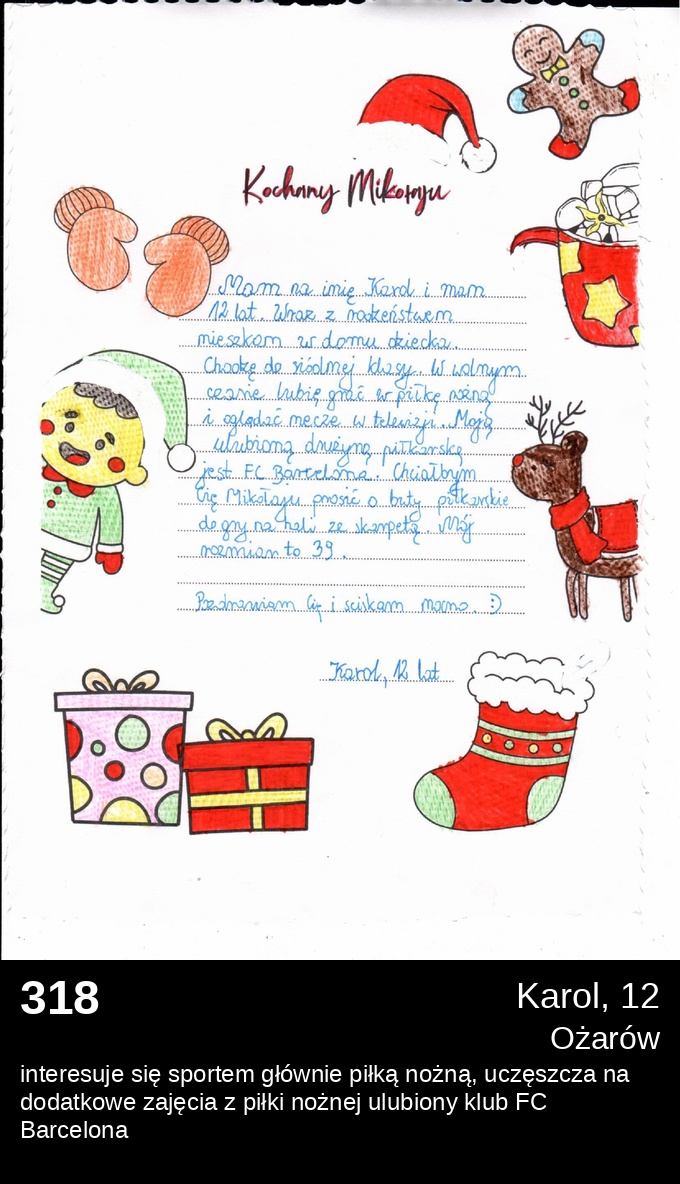 Kochany Mikołaju
Mam na imię Karol i mam
12 lat. Wraz z rodzeństwem
mieszkam w domu dziecka.
Chodzę do siódmej klasy. W wolnym
czasie lubię grać w piłkę nożną
i oglądać mecze w telewizji. Moją
ulubioną drużyną piłkarską
jest FC Barcelona. Chciałbym
Cię Mikołaju prosić o buty piłkarskie
do gry na hali ze skarpetą. Mój
rozmiar to 39.
Pozdrawiam Cię i ściskam mocno. :)
Karol, 12 lat
318
Karol, 12
Ożarów
interesuje się sportem głównie piłką nożną, uczęszcza na
dodatkowe zajęcia z piłki nożnej ulubiony klub FC
Barcelona